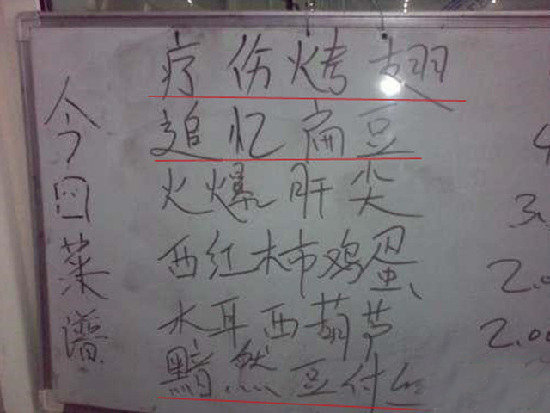 今日菜谱
疗伤烤翅
追忆扁豆 4
火爆肝尖 3.
西红柿鸡蛋 2.0
木耳西葫芦 2.00
黯然豆付丝